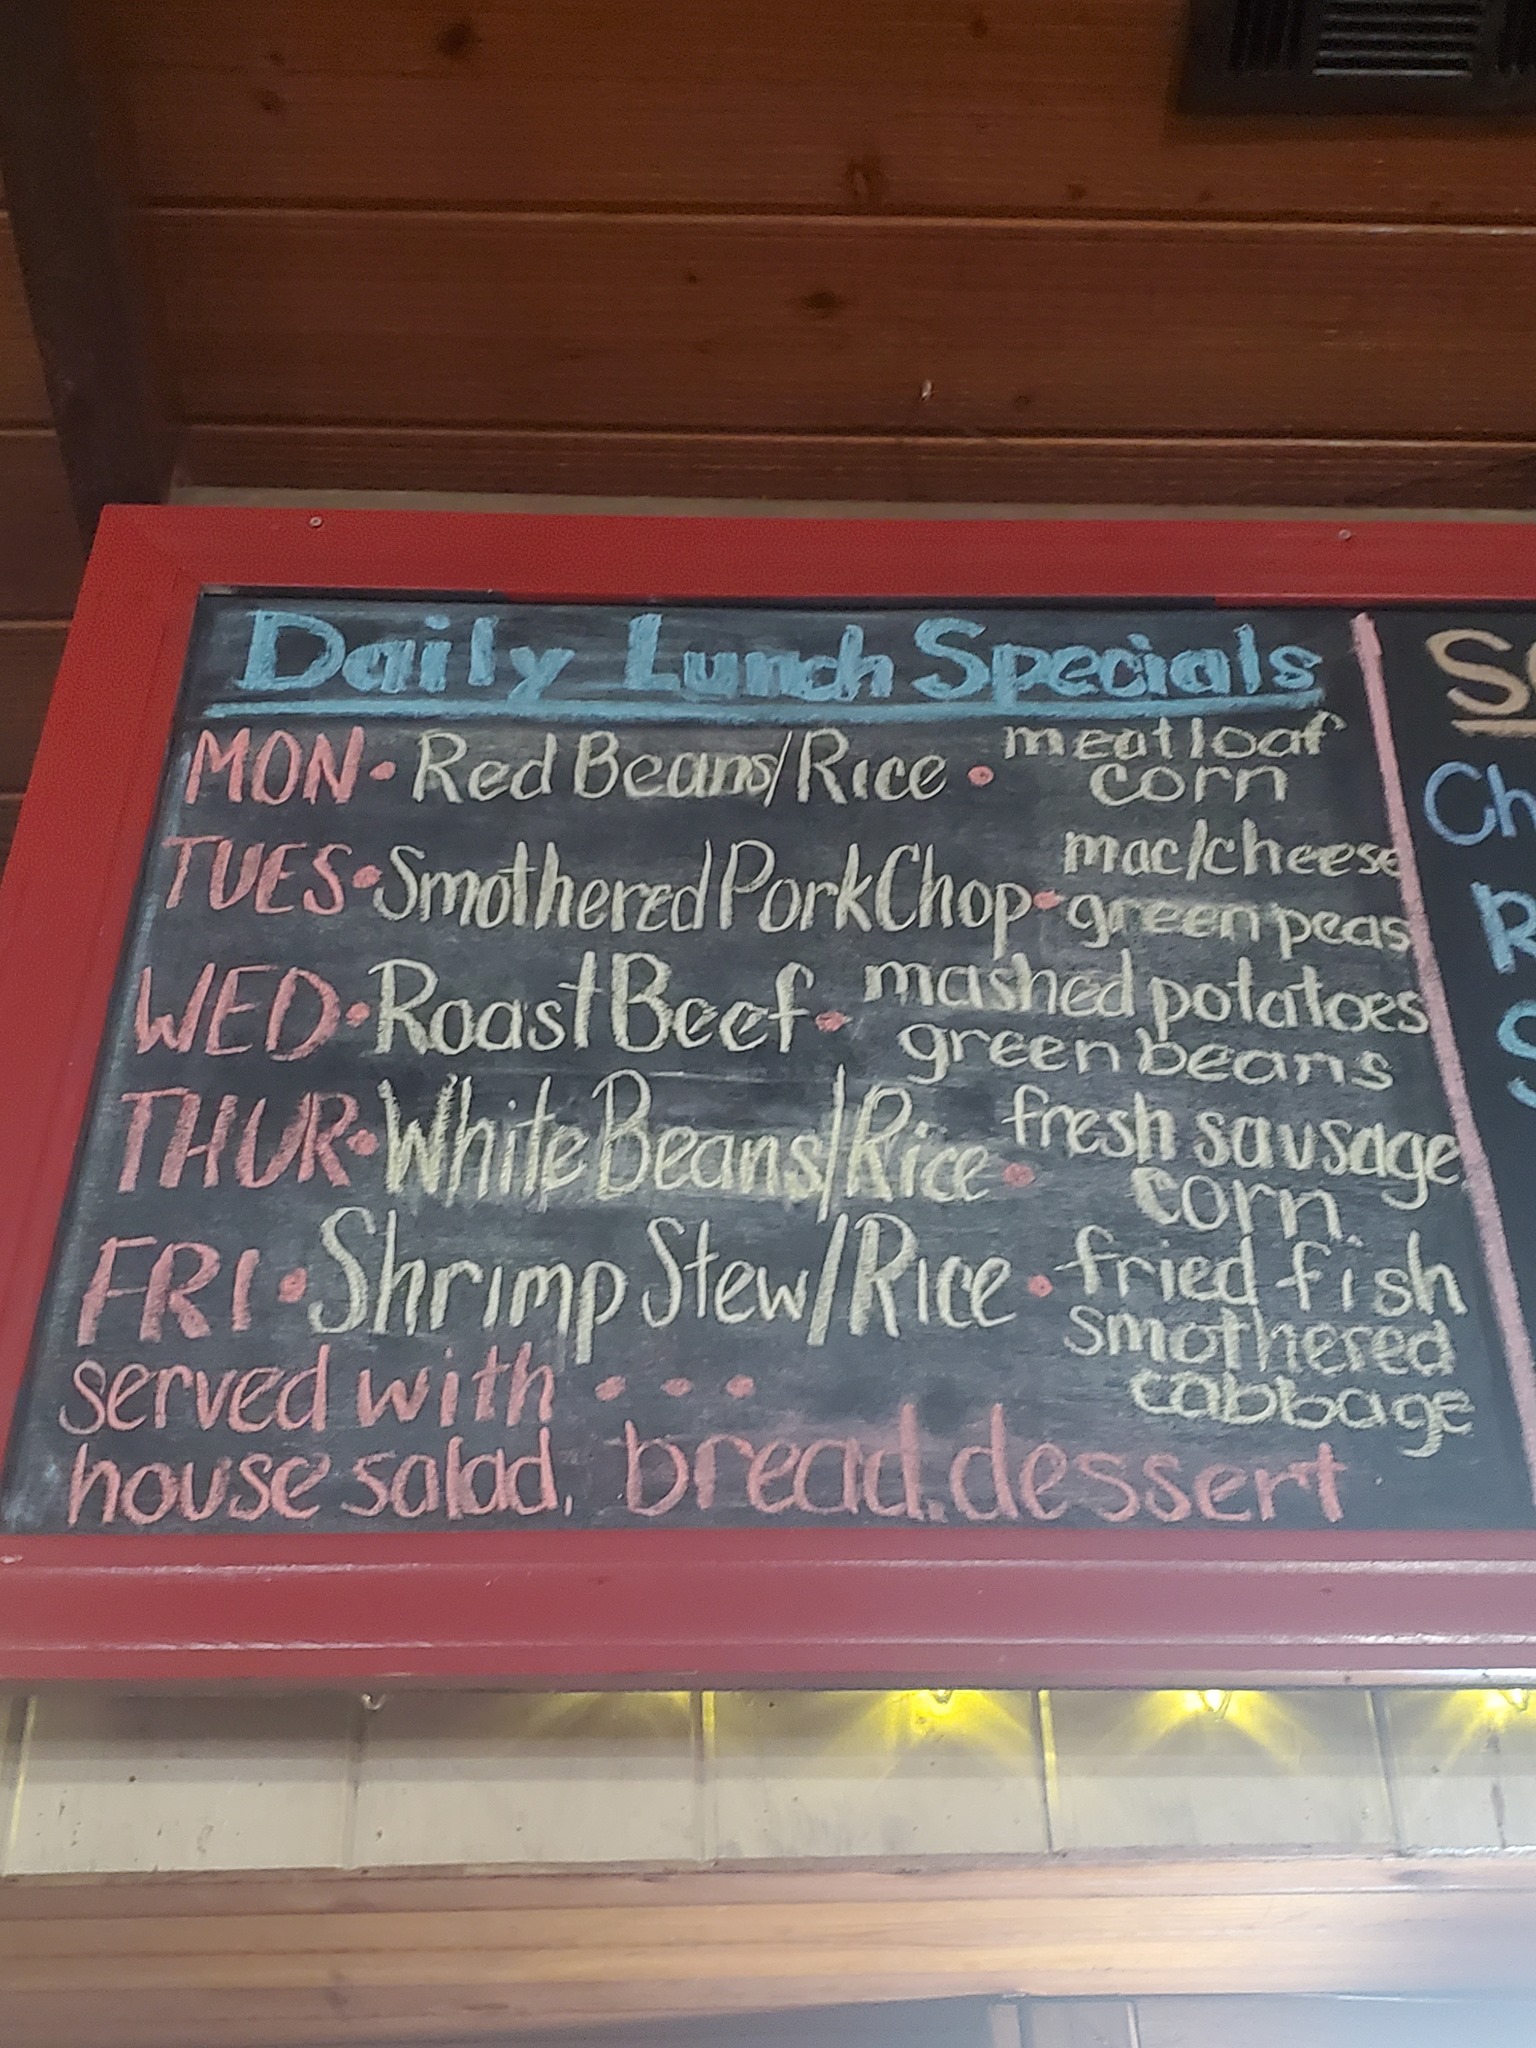 Daily Lunch Specials
MON • Red Beans/Rice • meatloaf
corn
TUES • Smothered Pork Chop • mac/cheese
green peas
WED • Roast Beef • mashed potatoes
green beans
THUR • White Beans/Rice • fresh sausage
corn
FRI • Shrimp Stew/Rice • fried fish
smothered
cabbage
served with • • •
house salad, bread, dessert